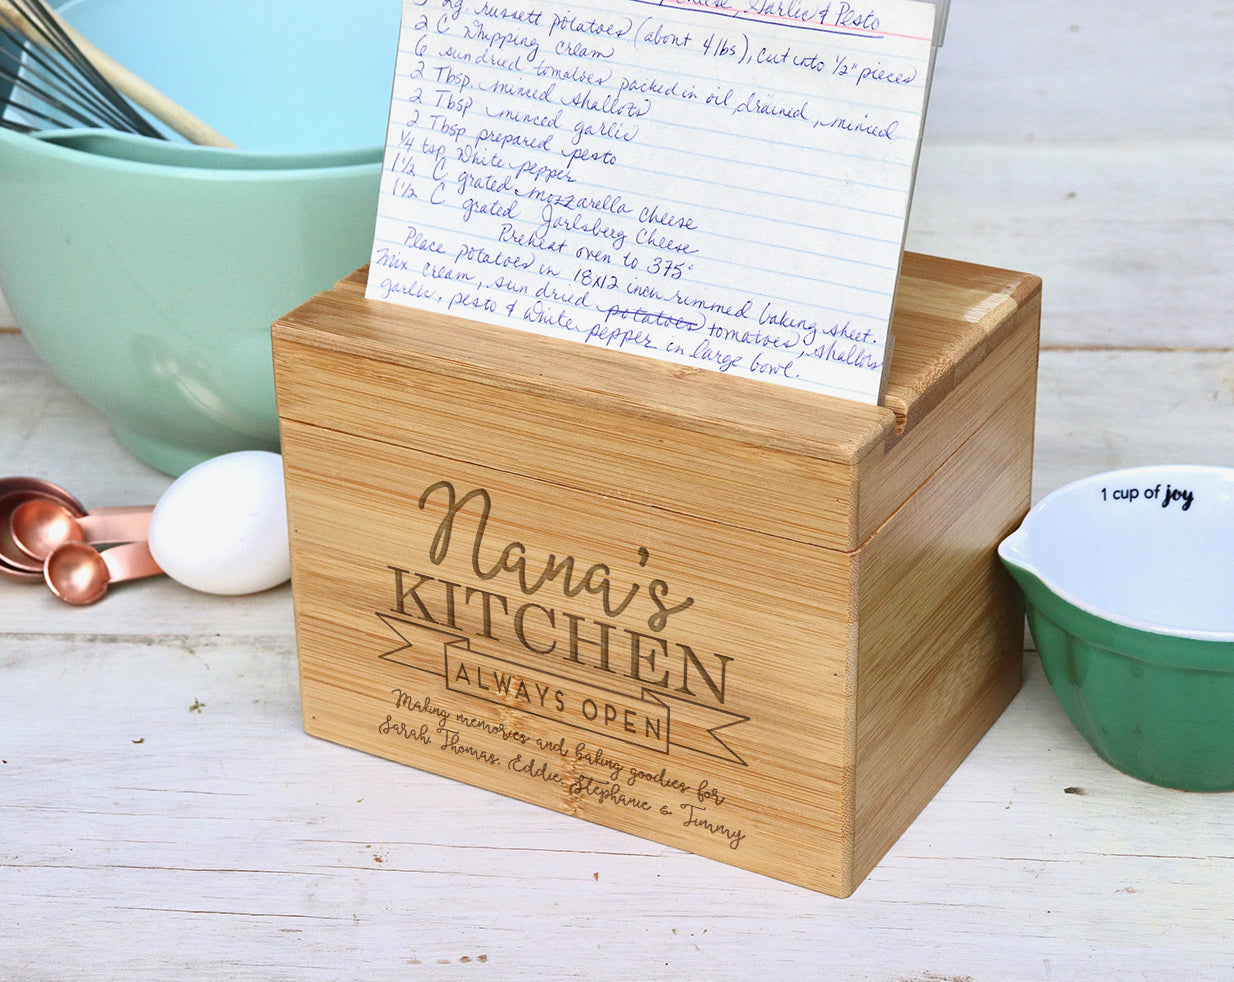 Cheese, Garlic & Pesto
lg. russett potatoes (about 4 lbs), cut into 1/2" pieces
2 C Whipping cream
6 sun dried tomatoes packed in oil, drained, minced
2 Tbsp. minced shallots
2 Tbsp minced garlic
2 Tbsp prepared pesto
1/4 tsp White pepper
1 1/2 C grated mozzarella cheese
1 1/2 C grated Jarlsberg Cheese
Preheat oven to 375°
Place potatoes in 18x12 inch rimmed baking sheet.
Mix cream, sun dried potatoes tomatoes, shallots
garlic, pesto & White pepper in large bowl.
Nana's
KITCHEN
ALWAYS OPEN
Making memories and baking goodies for
Sarah, Thomas, Eddie, Stephanie & Timmy
1 cup of joy